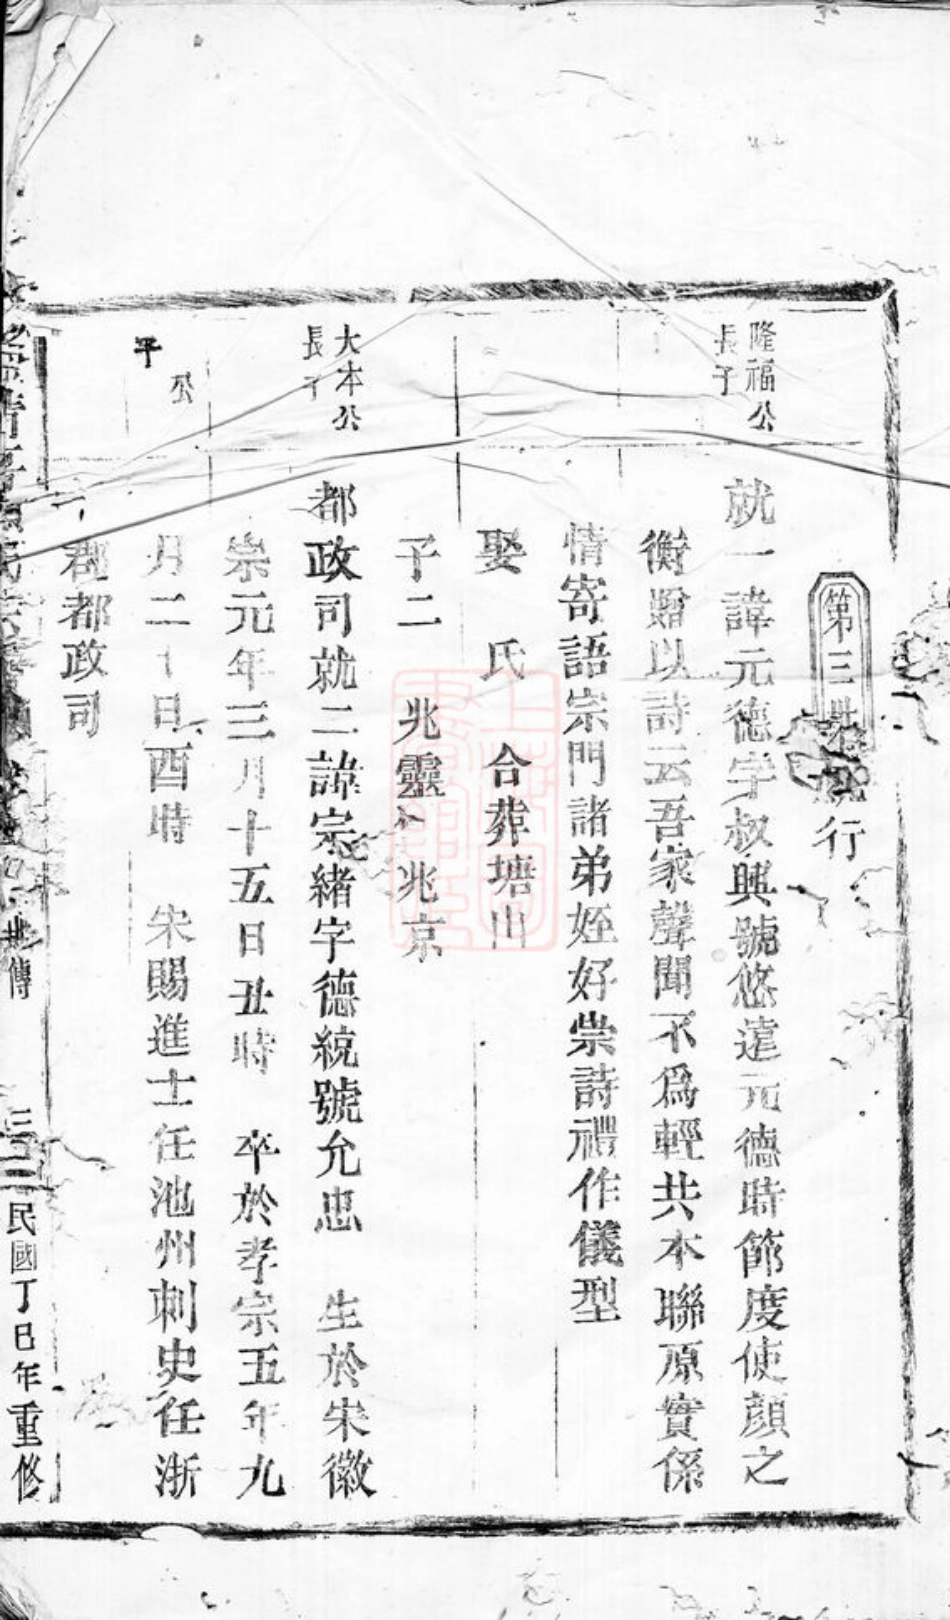 第三世 行
隆福公
長子
就一諱元德字叔興號悠遠元德時節度使顏之
衡贈以詩云吾家聲聞不為輕共本聯原實係
情寄語宗門諸弟姪好崇詩禮作儀型
娶 氏 合葬塘山
子二 兆靈 兆京
大本公
長子
都政司就二諱宗緒字德統號允忠 生於宋徽
崇元年三月十五日丑時 卒於孝宗五年九
月二十日酉時 宋賜進士任池州刺史任浙
郡都政司
公
平
世傳
民國丁巳年重修